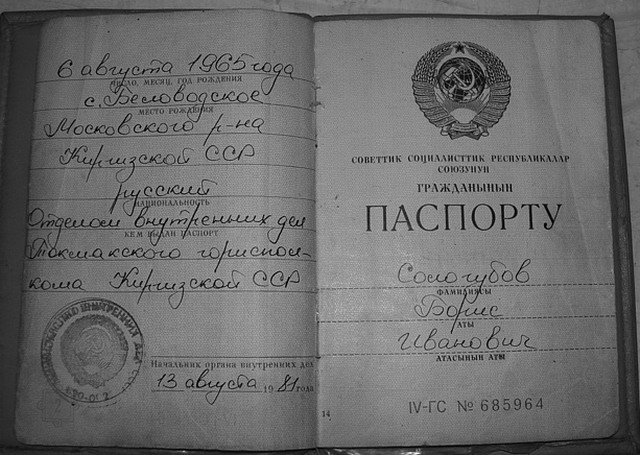 6 августа 1965 года
ЧИСЛО, МЕСЯЦ, ГОД РОЖДЕНИЯ
с. Беловодское
МЕСТО РОЖДЕНИЯ
Московского р-на
Киргизской ССР
русский
НАЦИОНАЛЬНОСТЬ
Отделом внутренних дел
КЕМ ВЫДАН ПАСПОРТ
Токмакского гориспол-
кома Киргизской ССР
Начальник органа внутренних дел
13 августа 1981 года
СОВЕТТИК СОЦИАЛИСТТИК РЕСПУБЛИКАЛАР
СОЮЗУНУН
ГРАЖДАНЫНЫН
ПАСПОРТУ
Сологубов
ФАМИЛИЯСЫ
Борис
АТЫ
Иванович
АТАСЫНЫН АТЫ
14
IV-ГС № 685964